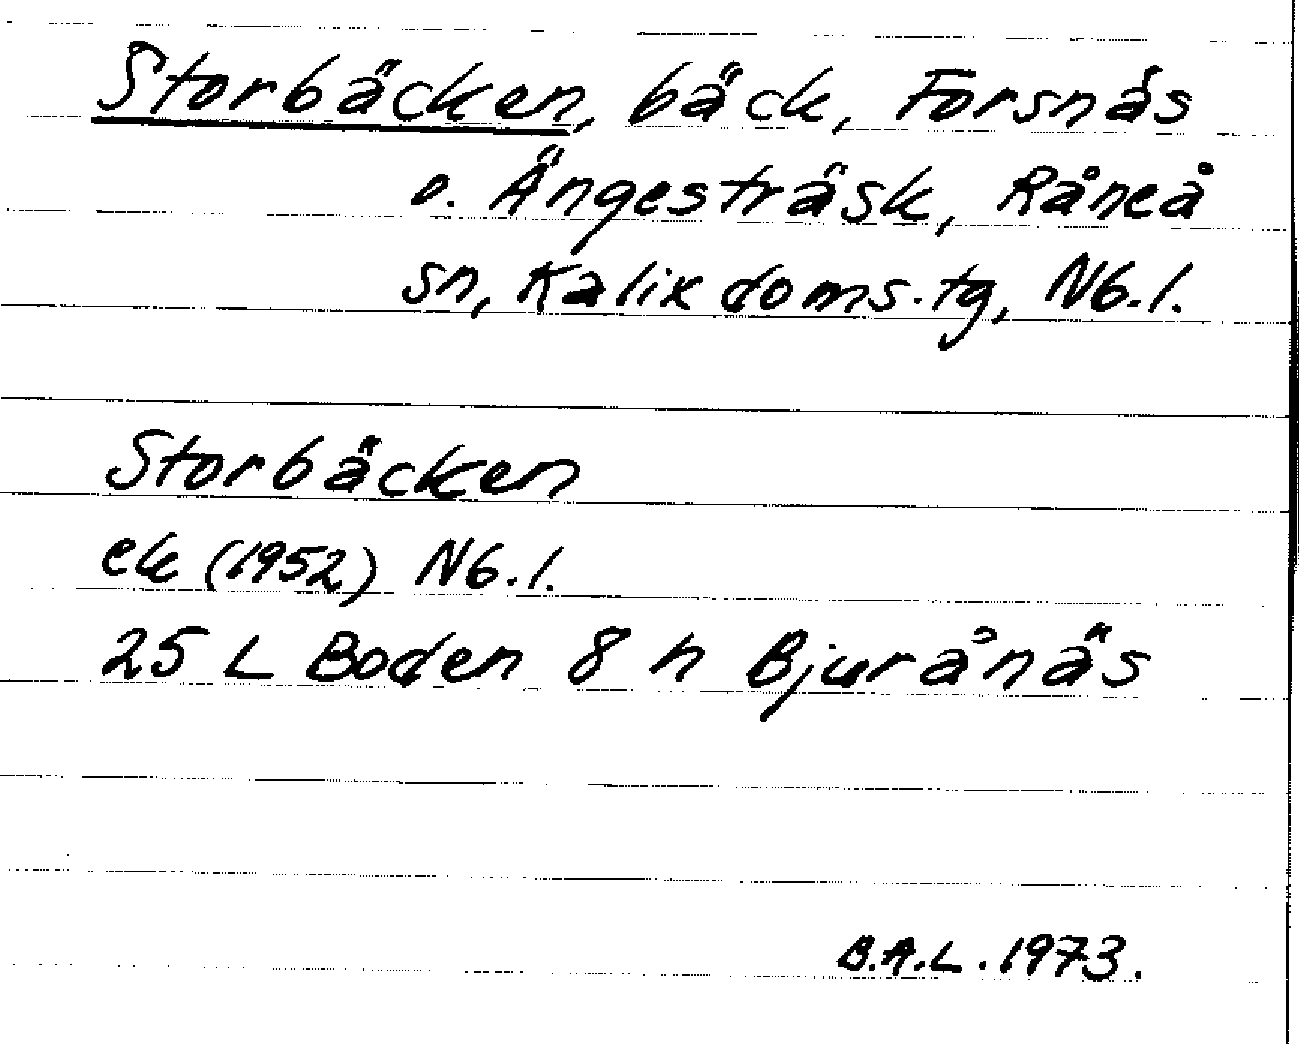 Storbäcken, bäck, Forsnäs
o. Ängesträsk, Råneå
sn, Kalix doms.tg, Nb.l.
Storbäcken
ek (1952) Nb.l.
25 L Boden 8 h Bjurånäs
B.A.L. 1973.